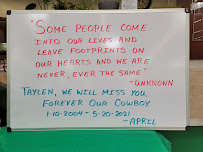 "SOME PEOPLE COME
INTO OUR LIVES AND
LEAVE FOOTPRINTS ON
OUR HEARTS AND WE ARE
NEVER, EVER THE SAME"
-UNKNOWN
TAYLEN, WE WILL MISS YOU,
FOREVER OUR COWBOY
1-10-2004 - 5-20-2021
-APRIL